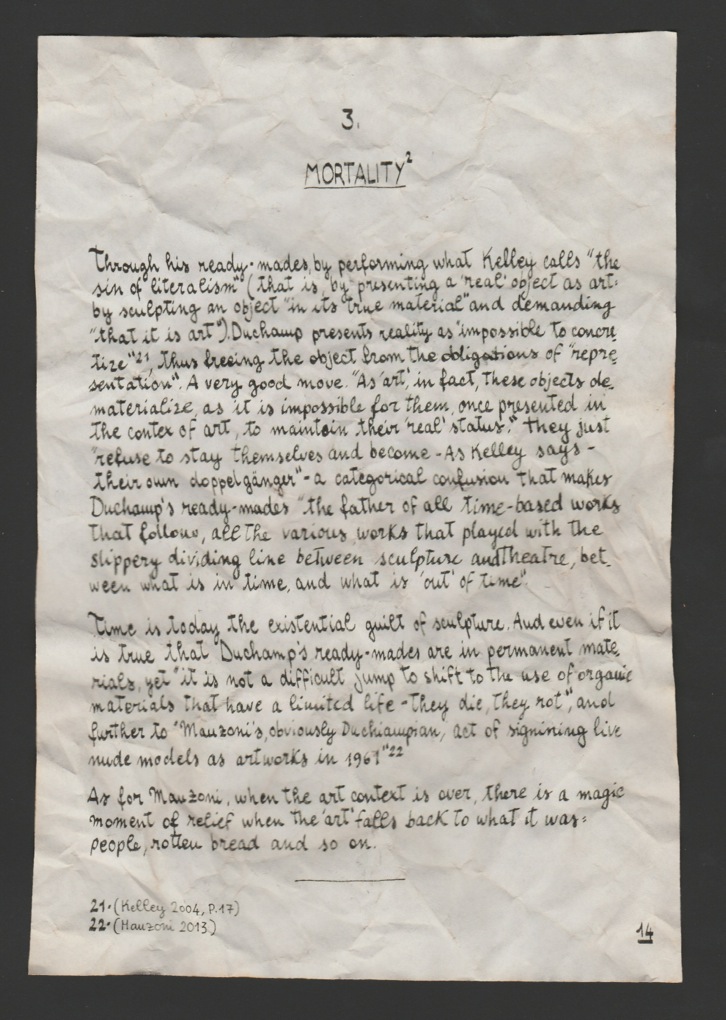 3.
MORTALITY²
Through his ready-mades, by performing what Kelley calls "the
sin of literalism" (that is, by presenting a 'real' object as art:
by sculpting an object "in its 'true material'" and demanding
"that it is art"). Duchamp presents reality as "impossible to concre
tize"²¹, thus freeing the object from the obligations of "repre
sentation". A very good move. "As 'art', in fact, these objects de
materialize, as it is impossible for them, once presented in
the contex of art, to maintain their 'real' status." They just
"refuse to stay themselves and become - As Kelley says -
their own doppelgänger" - a categorical confusion that makes
Duchamp's ready-mades "the father of all time-based works
that follow, all the various works that played with the
slippery dividing line between sculpture and theatre, bet
ween what is in time, and what is 'out' of time".
Time is today the existential guilt of sculpture. And even if it
is true that "Duchamp's ready-mades are in permanent mate
rials, yet "it is not a difficult jump to shift to the use of organic
materials that have a limited life - they die, they rot", and
further to "Manzoni's, obviously Duchiampian, act of signining live
nude models as artworks in 1961"²²
As for Manzoni, when the art context is over, there is a magic
moment of relief when the 'art' falls back to what it was:
people, rotten bread and so on.
21. (Kelley 2004, P.17)
22. (Manzoni 2013)
14